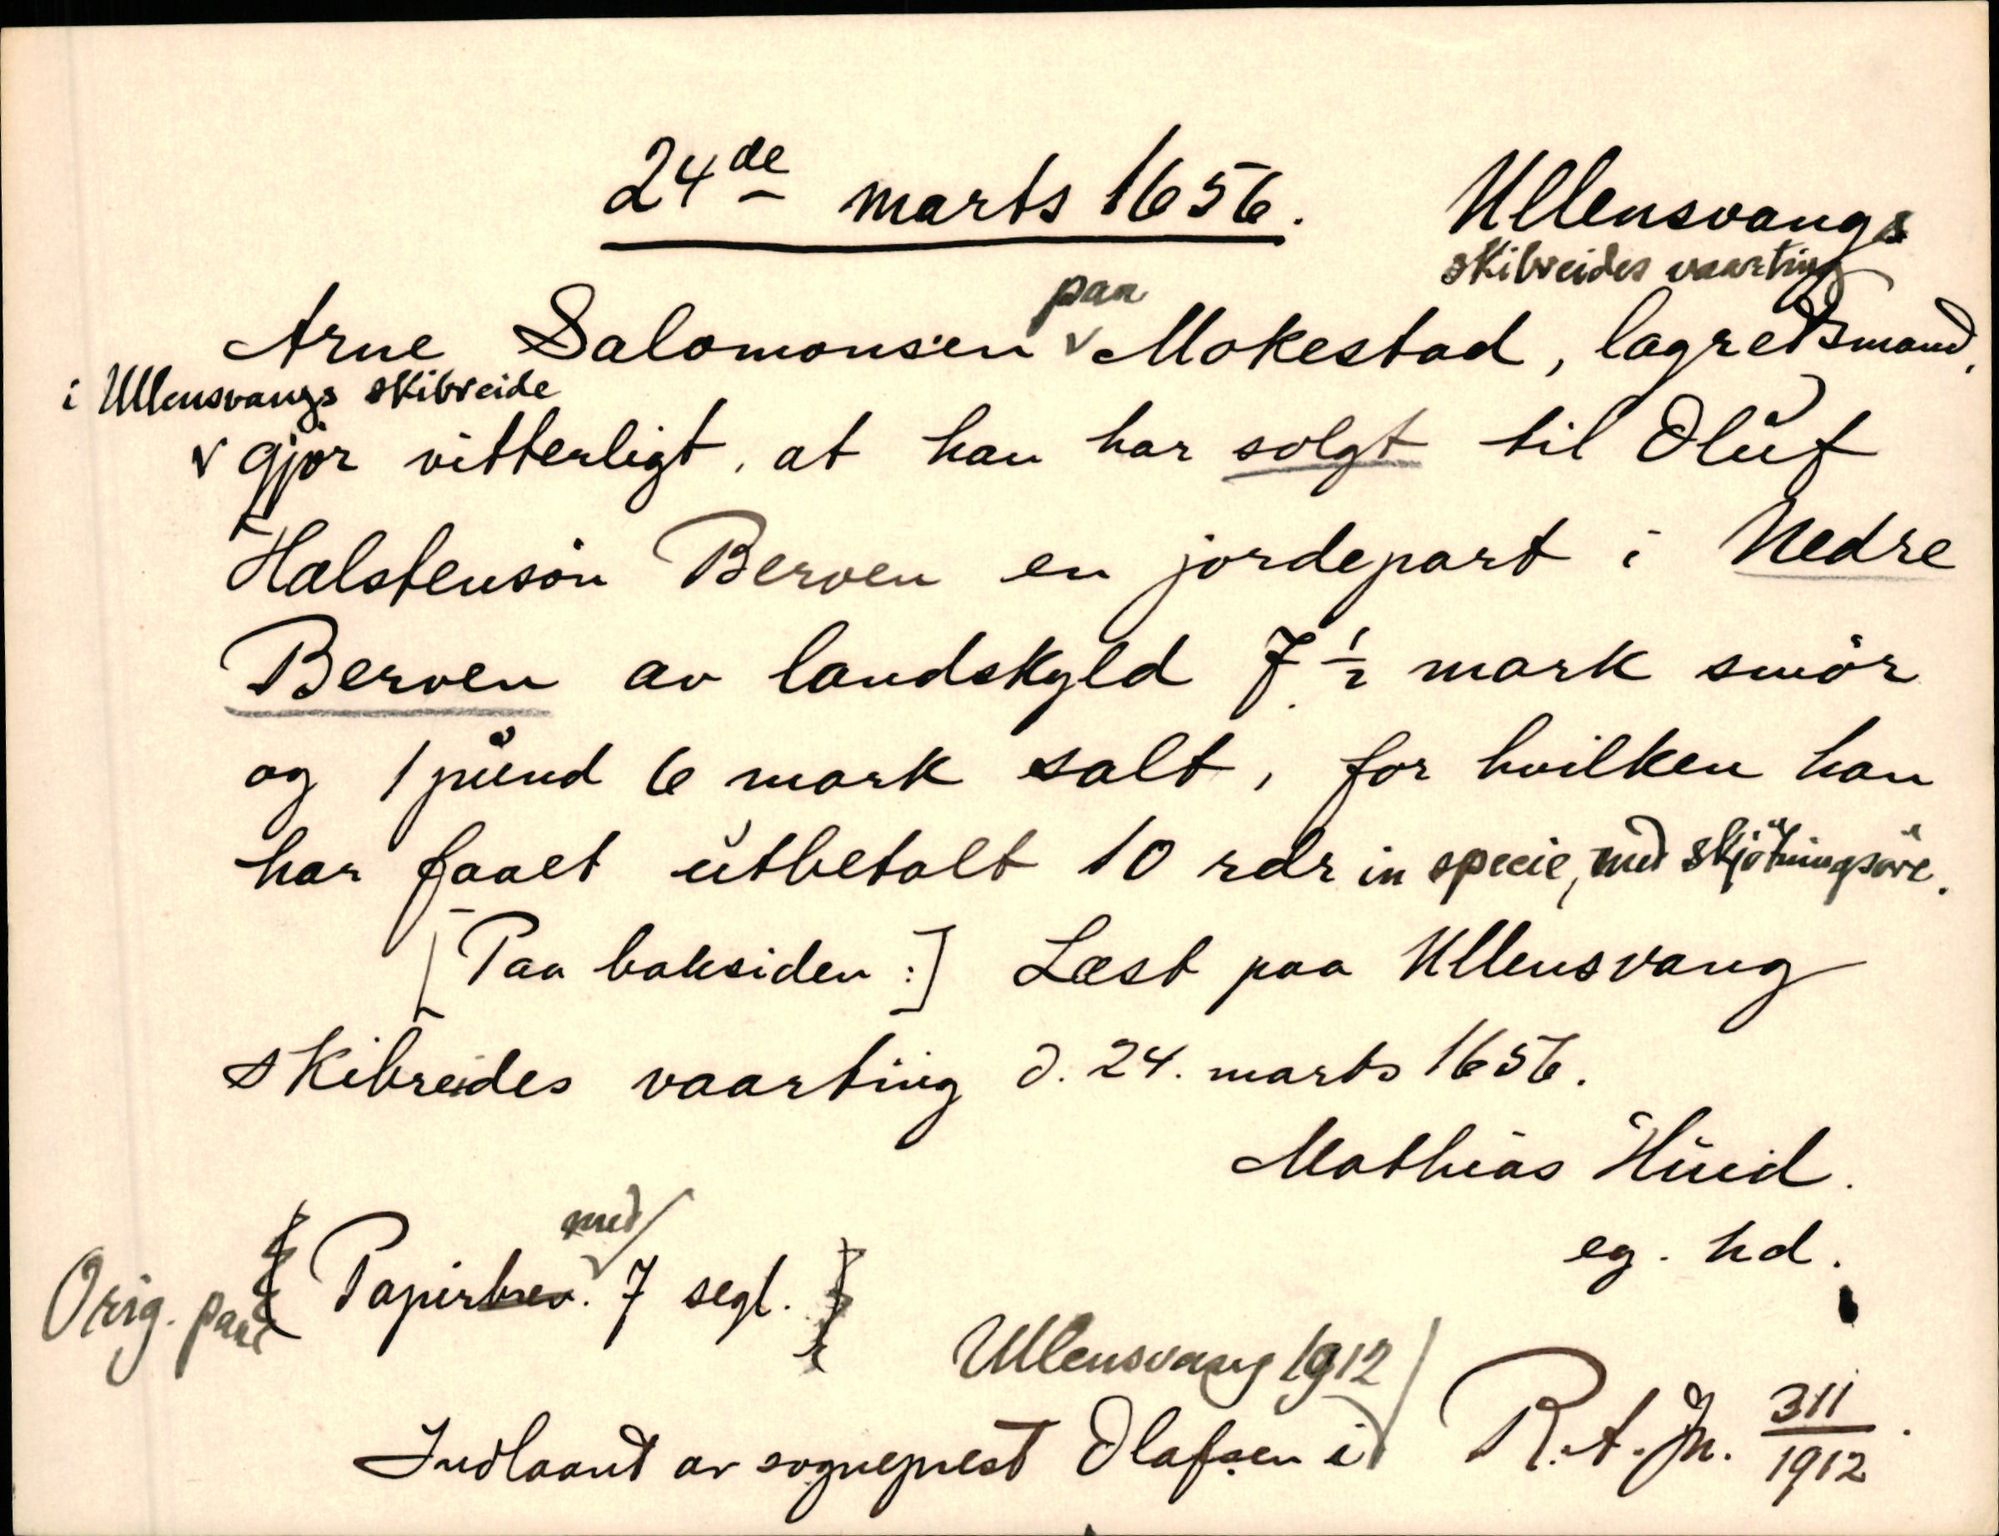 24de marts 1656. Ullensvangs
skibreides vaarting
paa
Arne Salomonsen Mokestad, lagretsmand,
i Ullensvangs skibreide
gjör vitterligt, at han har solgt til Oluf
Halstensön Berven en jordepart i Nedre
Berven av landskyld 7 1/2 mark smör
og 1 pund 6 mark salt, for hvilken han
har faaet utbetalt 10 rdr in specie, med skjötningsöre.
[Paa baksiden:] Læst paa Ullensvang
skibreides vaarting d. 24. marts 1656.
Mathias Huid.
eg. hd.
med
Orig. paa Papirbrev. 7 segl.
Ullensvang 1912
Indlaant av sogneprest Olafsen i R.A.Jn. 311/1912.